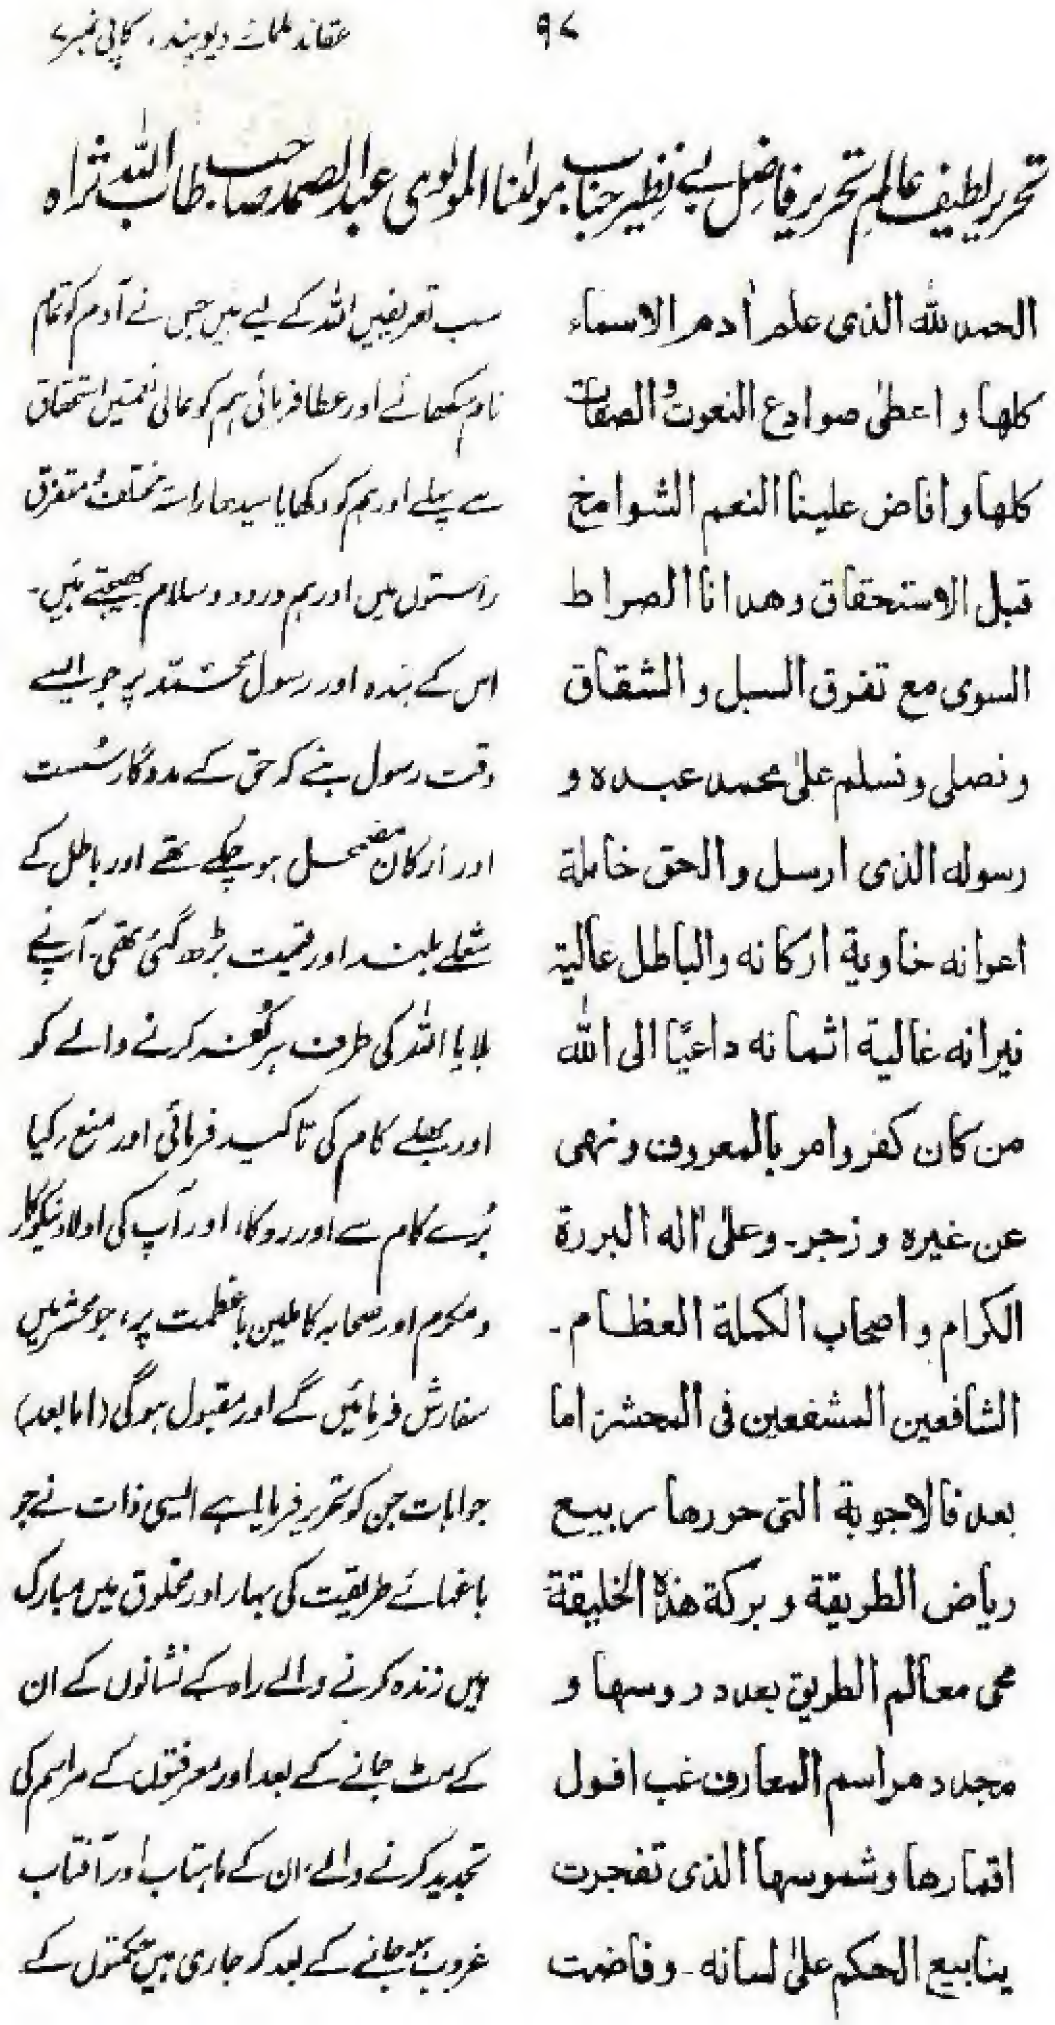 ۹۷
عقائد علمائے دیوبند، کاپی نمبر ۷
تحریر لطیف عالم تحریر فاضل بے نظیر جناب مولٰنا المولوی عبدالصمد صاحب طاب اللہ ثراہ
الحمد للہ الذی علم اٰدم الاسماء
کلها و اعطیٰ صوادع النعوت و الصفات
کلها و افاض علینا النعم الشوامخ
قبل الاستحقاق وهدانا الصراط
السوی مع تفرق السبل و الشقاق
و نصلی و نسلم علیٰ محمد عبدہ و
رسوله الذی ارسل والحق خاملة
اعوانه خاویة ارکانه والباطل عالیة
نیرانه غالیة اثمانه داعیًا الی اللہ
من کان کفر وامر بالمعروف و نهی
عن غیرہ و زجر۔ وعلیٰ اٰله البررة
الکرام و اصحاب الکملة العظام۔
الشافعین المشفعین فی المحشر اما
بعد فالاجوبة التی حررها ربیع
ریاض الطریقة و برکة هذه الخلیقة
محی معالم الطریق بعد دروسها و
مجدد مراسم المعارف غب افول
اقمارها و شموسها الذی تفجرت
ینابیع الحکم علیٰ لسانه۔ وفاضت
سب تعریفیں اللہ کے لیے ہیں جس نے آدم کو تمام
نام سکھائے اور عطا فرمائی ہم کو عالی نعمتیں استحقاق
سے پہلے اور ہم کو دکھایا سیدھا راستہ مختلف و متفرق
راستوں میں اور ہم درود و سلام بھیجتے ہیں۔
اس کے بندہ اور رسول محمد پر جو ایسے
وقت رسول بنے کہ حق کے مددگار سُست
اور ارکان مضمحل ہو چکے تھے اور باطل کے
شعلے بلند اور قیمت بڑھ گئی تھی۔ آپ نے
بلایا اللہ کی طرف ہر کفر کرنے والے کو
اور بھلے کام کی تاکید فرمائی اور منع کیا
بُرے کام سے اور روکا، اور آپ کی اولاد نیکوکار
و مکرم اور صحابہ کاملین باعظمت پر، جو محشر میں
سفارش فرمائیں گے اور مقبول ہوگی (امابعد)
جوابات جن کو تحریر فرمایا ہے ایسی ذات نے جو
باغہائے طریقت کی بہار اور مخلوق میں مبارک
ہیں زندہ کرنے والے راہ کے نشانوں کے ان
کے مٹ جانے کے بعد اور معرفتوں کے مراسم کی
تجدید کرنے والے، ان کے ماہتاب اور آفتاب
غروب ہو جانے کے بعد کہ جاری ہیں حکمتوں کے